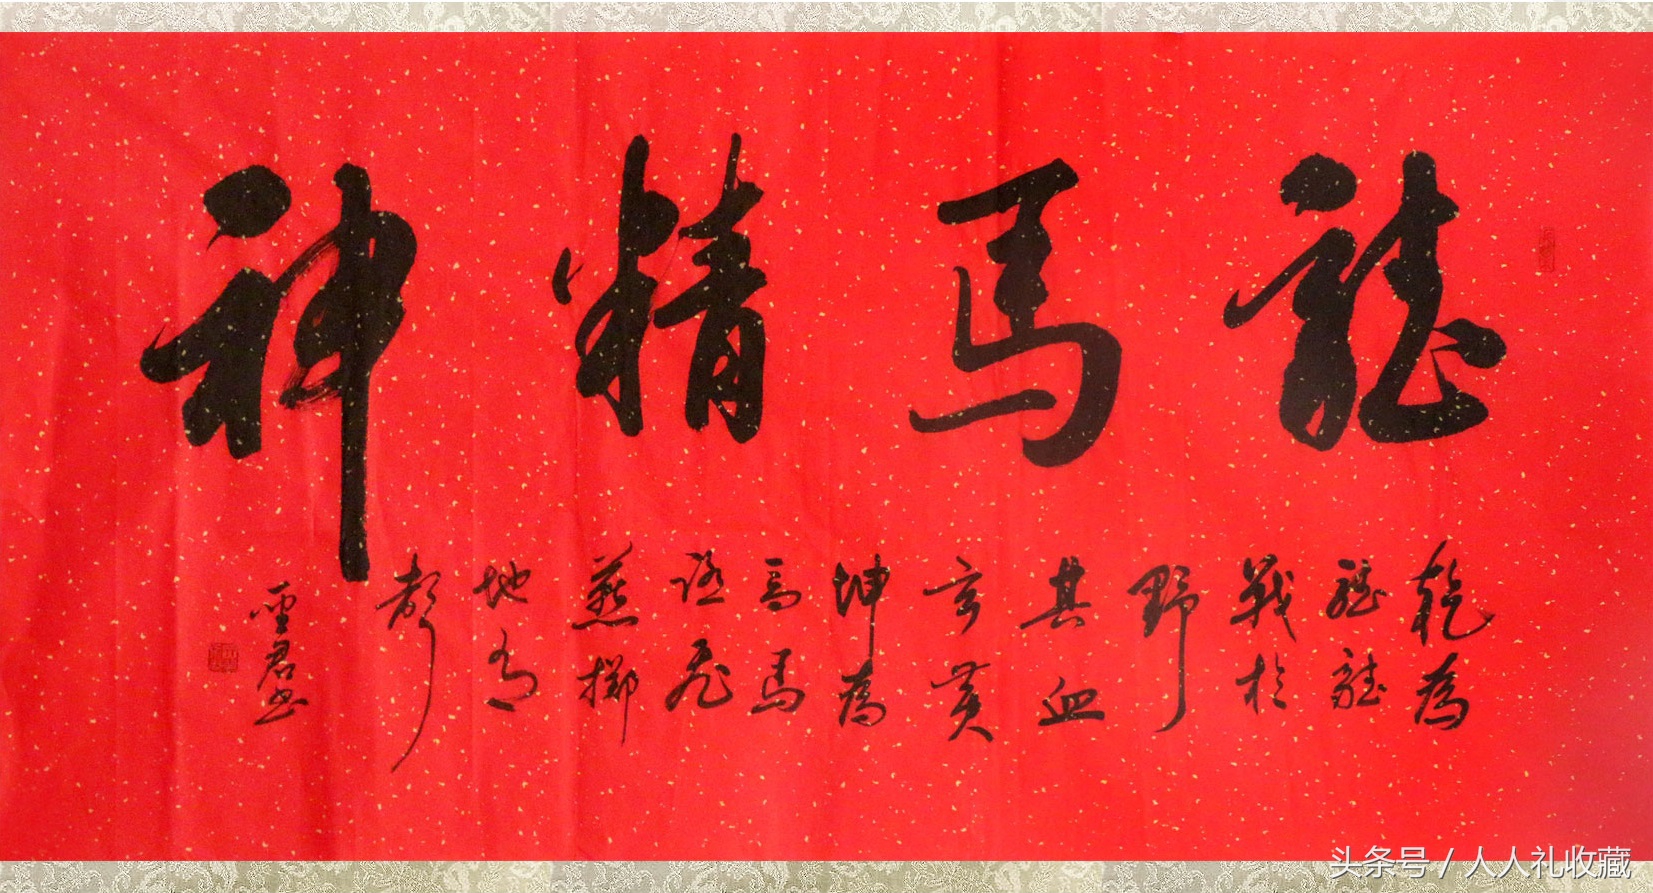 龍馬精神
乾為
龍龍
戰於
野
其血
玄黃
坤為
馬馬
飛
燕擲
地有
聲
雲君书
头条号 / 人人礼收藏